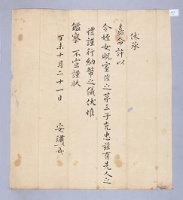 伏承
嘉命許以
令姪女貺室僕之第三子克忠茲有先人之
禮謹行納幣之儀伏惟
鑑察 不宣謹狀
未十月二十一日
安